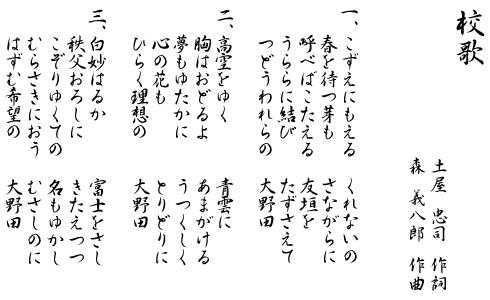 校歌
土屋 忠司 作詞
森 義八郎 作曲
一、こずえにもえる くれないの
春を待つ芽も さながらに
呼べばこたえる 友垣を
うららに結び たずさえて
つどうわれらの 大野田
二、高空をゆく 青雲に
胸はおどるよ あまがける
夢もゆたかに うつくしく
心の花も とりどりに
ひらく理想の 大野田
三、白妙はるか 富士をさし
秩父おろしに きたえつつ
こぞりゆくての 名もゆかし
むらさきにおう むさしのに
はずむ希望の 大野田